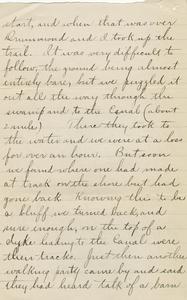 start, and when that was over
Drummond and I took up the
trail. It was very difficult to
follow, the ground being almost
entirely bare, but we puzzled it
out all the way through the
swamp and to the Canal (about
2 miles) There they took to
the water and we were at a loss
for over an hour. But soon
we found where one had made
a track on the shore but had
gone back. Knowing this to be
a bluff, we turned back, and
sure enough, on the top of a
dyke leading to the Canal were
their tracks. Just then another
walking party came by and said
they had heard talk of a barn